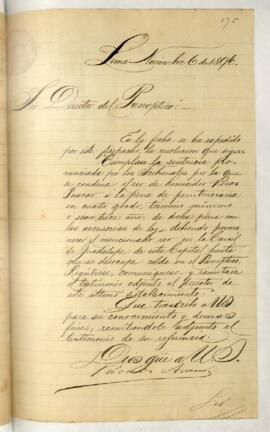 175
Lima Noviembre 6 de 1876.
Sr. Director del Panoptico.
En la fecha se ha expedido
por este despacho la resolucion que sigue
"Cumplase la sentencia pro-
nunciada por los Tribunales por la que
se condena al reo de homicidio
Paucar á la pena de penitenciaria
en cuarto grado, termino minimo
ó sean trece años de dicha pena con
las accesorias de ley, debiendo perma-
necer el mencionado reo en la Carcel
de Guadalupe de esta Capital hasta
que se desocupe celda en el Panoptico.
Registrese, comuniquese y remitase
el testimonio adjunto al Director de
este ultimo establecimiento."
Que trascribo á US
para su conocimiento y demas
fines, remitiendole adjunto el
testimonio de su referencia
Dios gue á U.S.